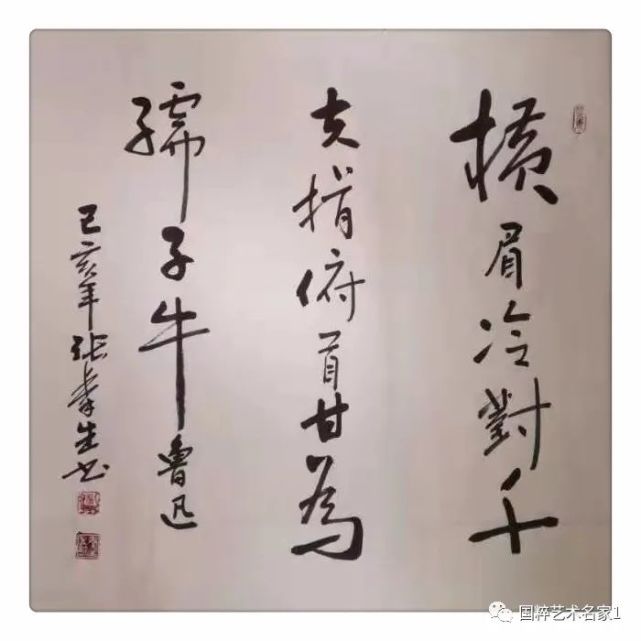 橫眉冷對千
夫指俯首甘為
孺子牛 魯迅
己亥年張春生书
国粹艺术名家1